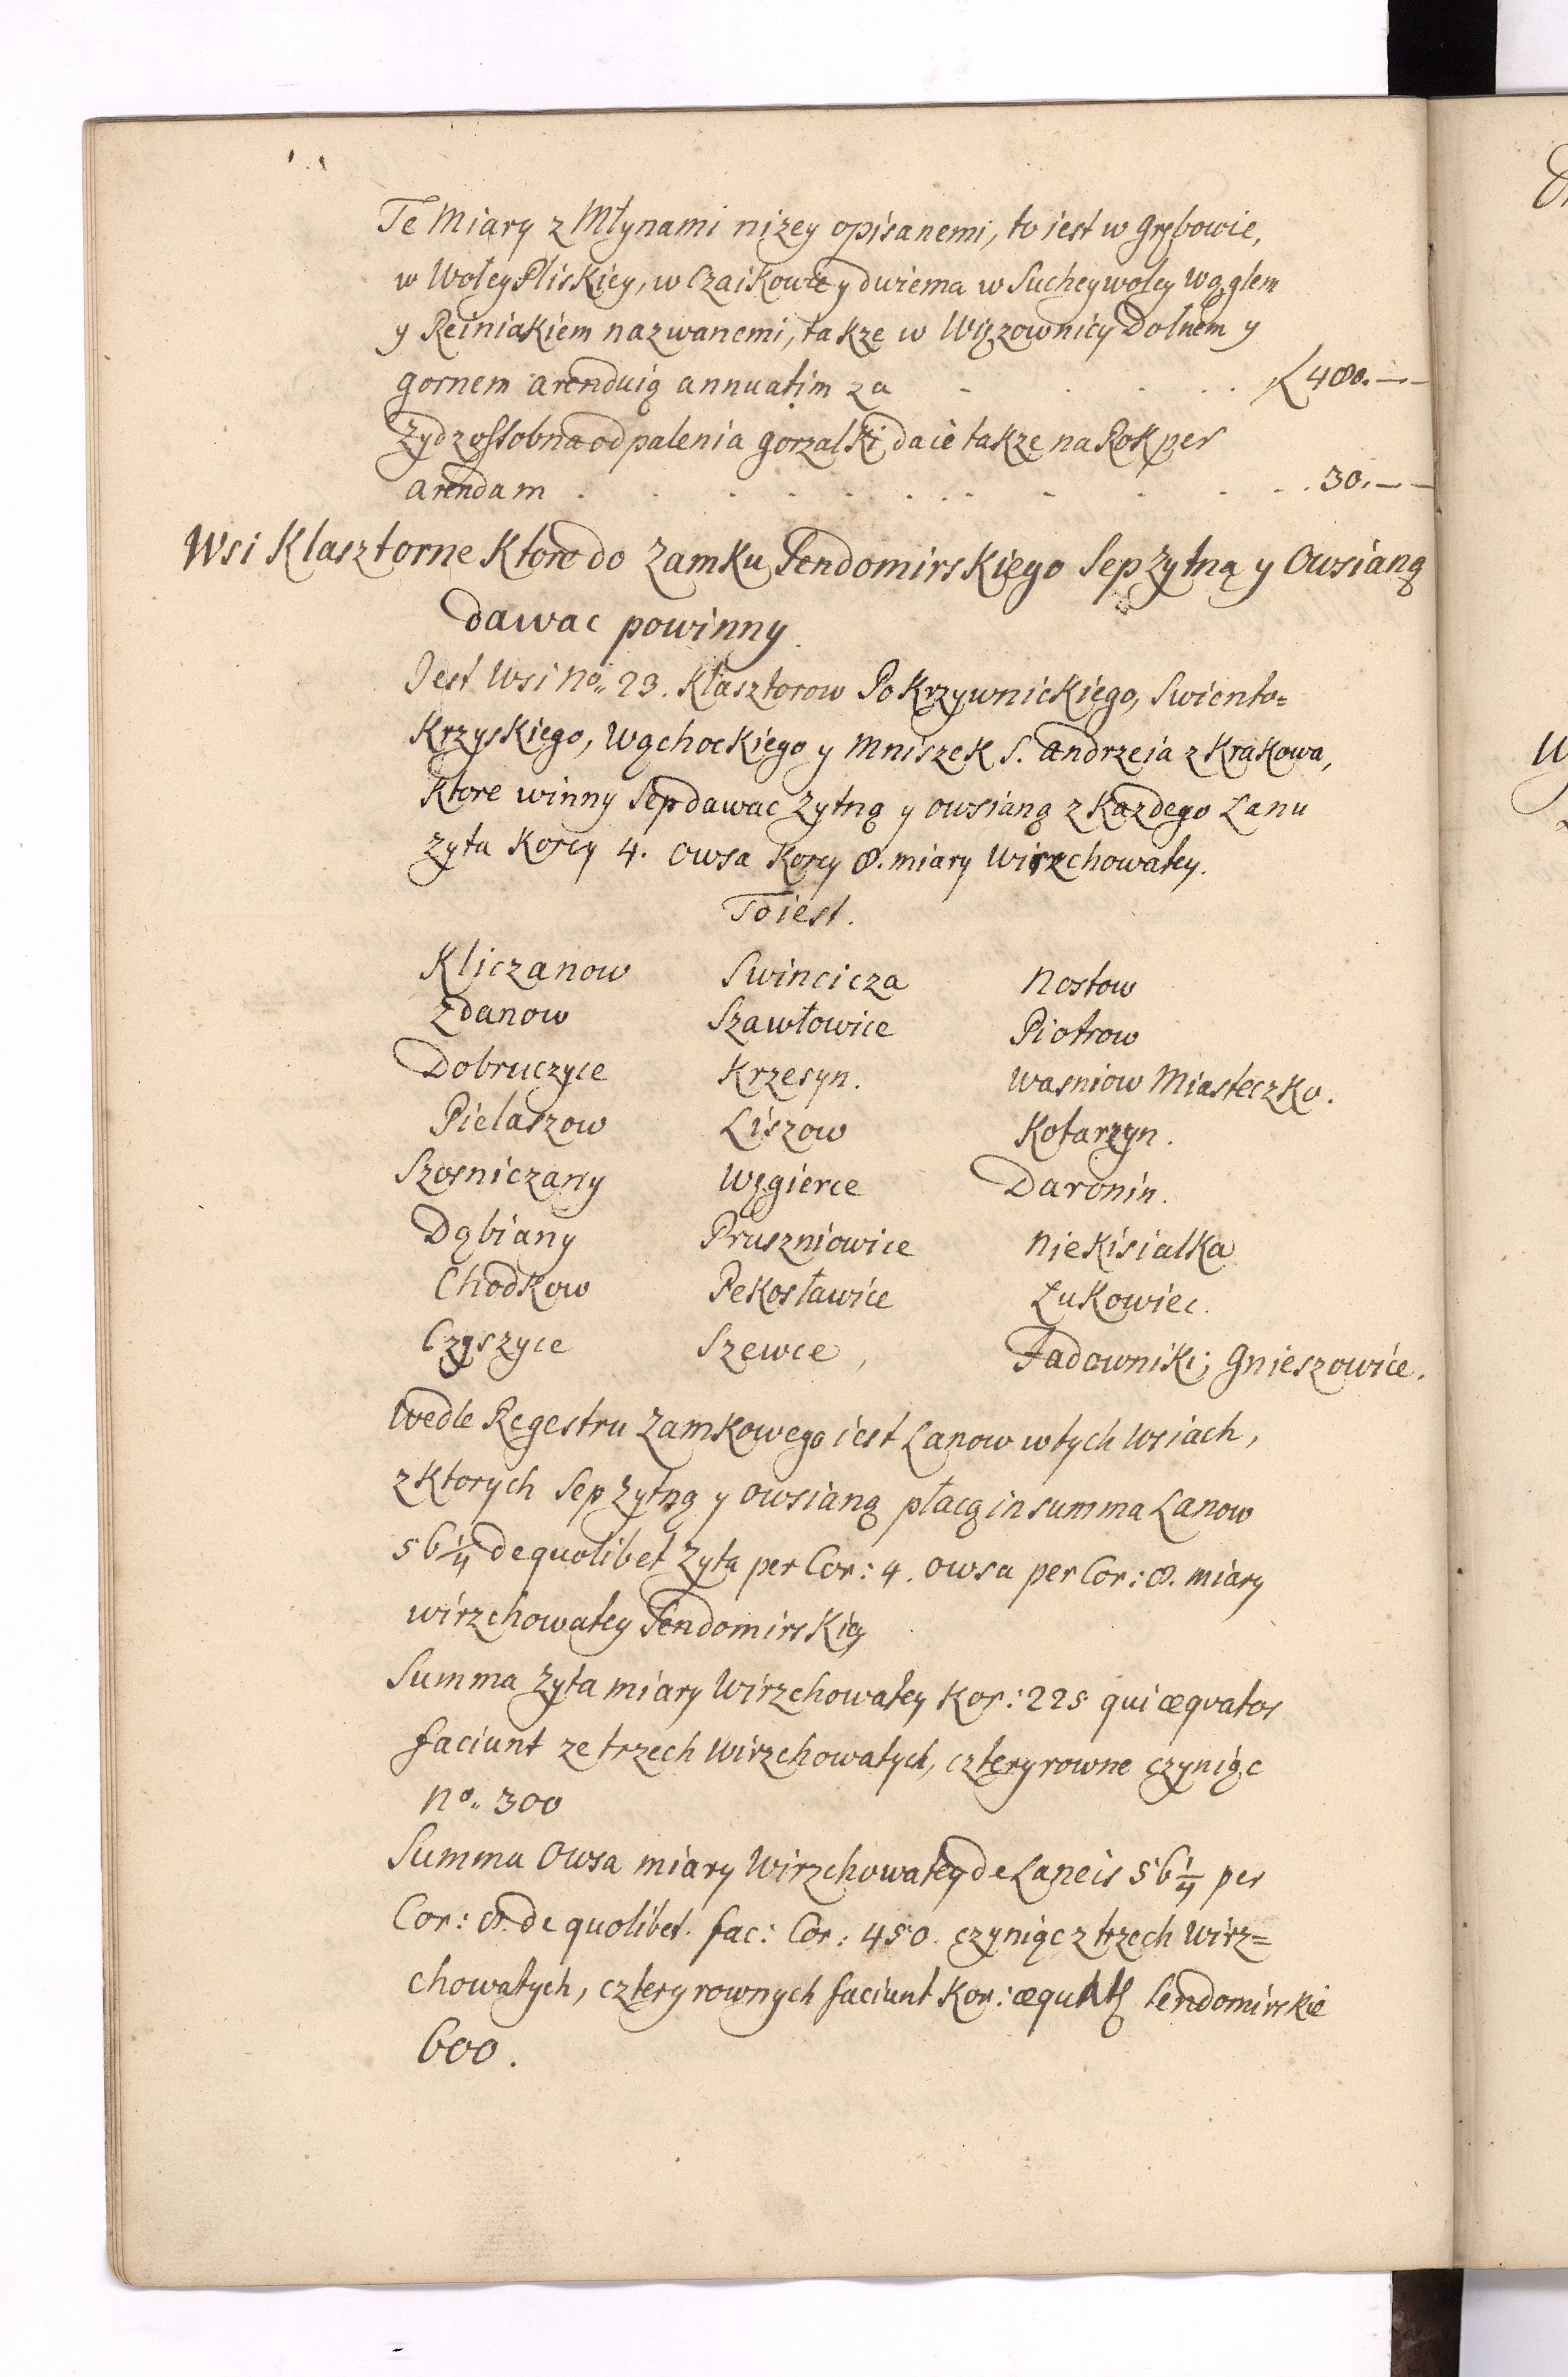 Te Miary z Młynami niżey opisanemi, to iest w Grębowie,
w Woley Pliskiey, w Czaikowie y dwiema w Suchey woley Węglem
y Reiniakiem nazwanemi, takze w Wizzownicy Dolnem y
gornem arenduią annuatim za - . . . . . ƒ 480.—-
Zyd zossobna od palenia gorzałki daie takze na Rok per
arendam . . . . . . . . . . . 30.—-
Wsi Klasztorne Ktore do Zamku Sendomirskiego Sep Zytną y Owsianą
dawac powinny.
Jest Wsi No. 23. Klasztorow Pokrzywnickiego, Swiento=
Krzyskiego, Wąchockiego y Mniszek S. Andrzeia z Krakowa,
Ktore winny Sep dawac Zytną y owsianą z Kazdego Lanu
zyta Korcy 4. Owsa Korcy 8. miary Wirzchowatey.
To iest.
Kliczanow Swincicza Nosłow
Zdanow Szawłowice Piotrow
Dobruczyce Krzesyn. Wasniow Miasteczko.
Pielaszow Liszow Kotarzyn.
Szosniczany Węgierce Daronin.
Dąbiany Pruszniowice Niekisialka
Chodkow Pekosławice Łukowiec.
Czyszyce Szewce, Jadowniki; Gnieszowice.
Wedle Regestru Zamkowego iest Lanow w tych Wsiach,
z Ktorych Sep Zytną y owsianą płacą in summa Lanow
56 1/4 de quolibet Zyta per Cor: 4. owsa per Cor: 8. miary
wirzchowatey Sendomirskiey
Summa Zyta miary Wirzchowatey Kor: 225 qui æquatos
faciunt ze trzech Wirzchowatych, cztery rowne czyniąc
No. 300
Summa Owsa miary Wirzchowatey de Laneis 56 1/4 per
Cor: 8. de quolibet. fac: Cor: 450. czyniąc z trzech Wirz=
chowatych, cztery rownych faciunt Kor: Sendomirskie
600.